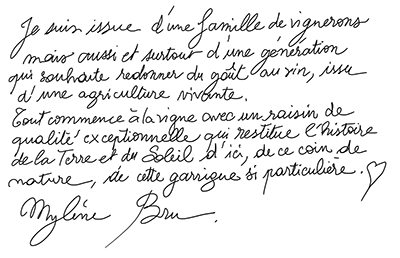 Je suis issue d'une famille de vignerons
mais aussi et surtout d'une génération
qui souhaite redonner du goût au vin, issu
d'une agriculture vivante.
Tout commence à la vigne avec un raisin de
qualité exceptionnelle qui restitue l'histoire
de la Terre et du Soleil d'ici, de ce coin de
nature, de cette garrigue si particulière.
Mylène Bru.